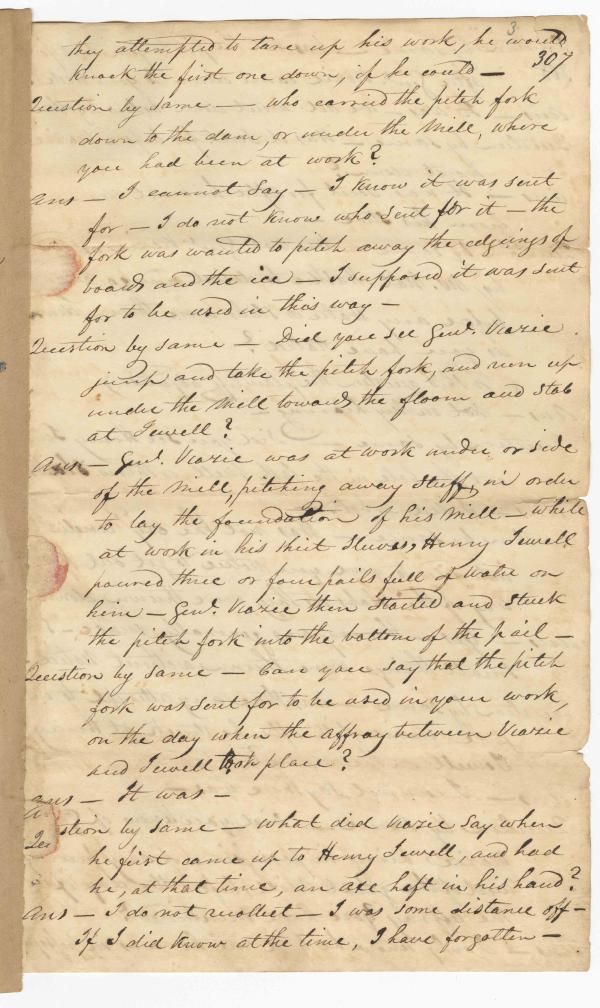 3
307
they attempted to tare up his work, he would
knock the first one down, if he could —
Question by same — who carried the pitch fork
down to the dam, or under the mill, where
you had been at work?
Ans — I cannot say — I know it was sent
for — I do not know who sent for it — the
fork was wanted to pitch away the edgeings of
boards and the ice — I supposed it was sent
for to be used in this way —
Question by same — Did you see Genl. Veazie
jump and take the pitch fork, and run up
under the mill towards the floom and stab
at Jewell?
Ans — Genl. Veazie was at work under or side
of the mill, pitching away stuff, in order
to lay the foundation of his mill — while
at work in his shirt sleeves, Henry Jewell
poured three or four pails full of water on
him — Genl. Veazie then started and stuck
the pitch fork into the bottom of the pail —
Question by same — Can you say that the pitch
fork was sent for to be used in your work,
on the day when the affray between Veazie
and Jewell took place?
Ans — It was —
Question by same — what did Veazie say when
he first came up to Henry Jewell, and had
he, at that time, an axe heft in his hand?
Ans — I do not recollect — I was some distance off —
If I did know at the time, I have forgotten —